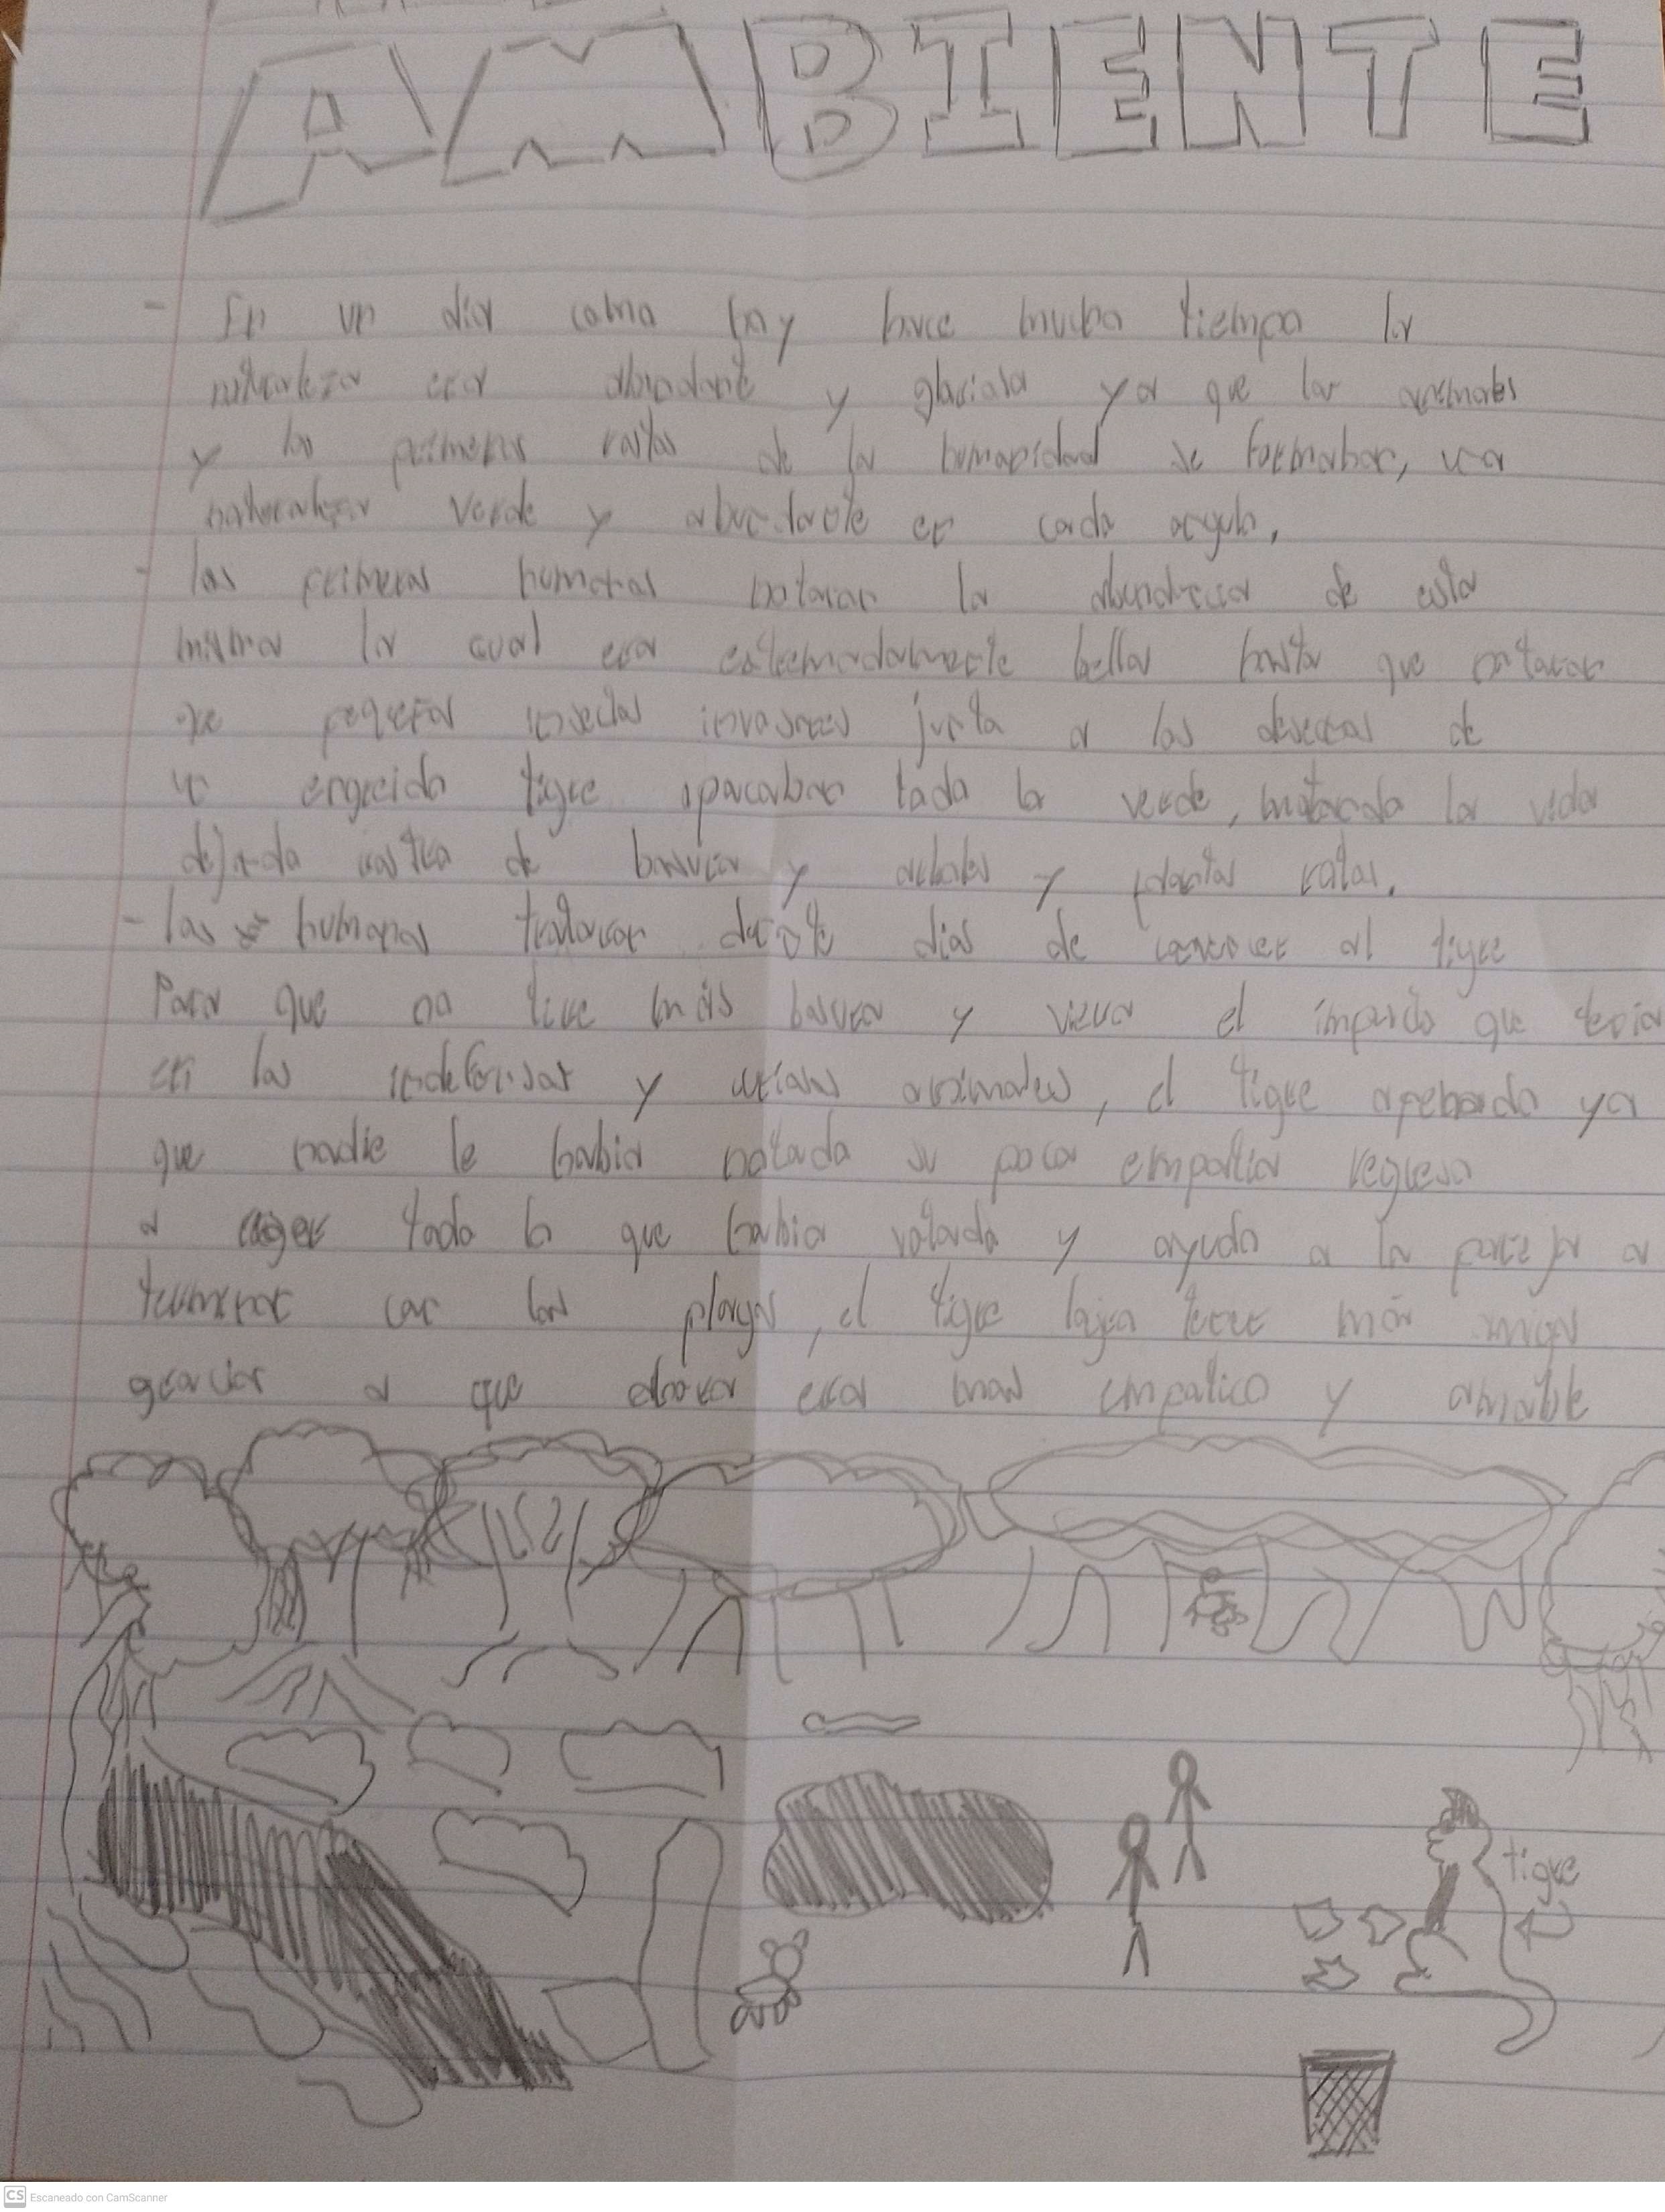 AMBIENTE
- En un dia como hoy hace mucho tiempo la
naturaleza era abundante y gloriosa ya que los animales
y los primeros rastros de la humanidad se formaban, una
naturaleza verde y abundante en cada angulo,
- los primeros humanos notaron la abundancia de esta
misma la cual era extremadamente bella hasta que notaron
que pequeños insectos invasores junto a los desechos de
un engreido tigre opacaban todo lo verde, matando la vida
dejando rastro de basura y arboles y plantas rotas.
- los humanos trataron durante dias de convencer al tigre
Para que no tire más basura y viera el impacto que tenia
en los indefensos y animales, el tigre apenado ya
que nadie le habia notado su poca empatia regreso
a coger todo lo que habia botado y ayudo a la pareja a
terminar con las plagas, el tigre logra tener más amigos
gracias a que ahora era mas empatico y amable
tigre
CS Escaneado con CamScanner